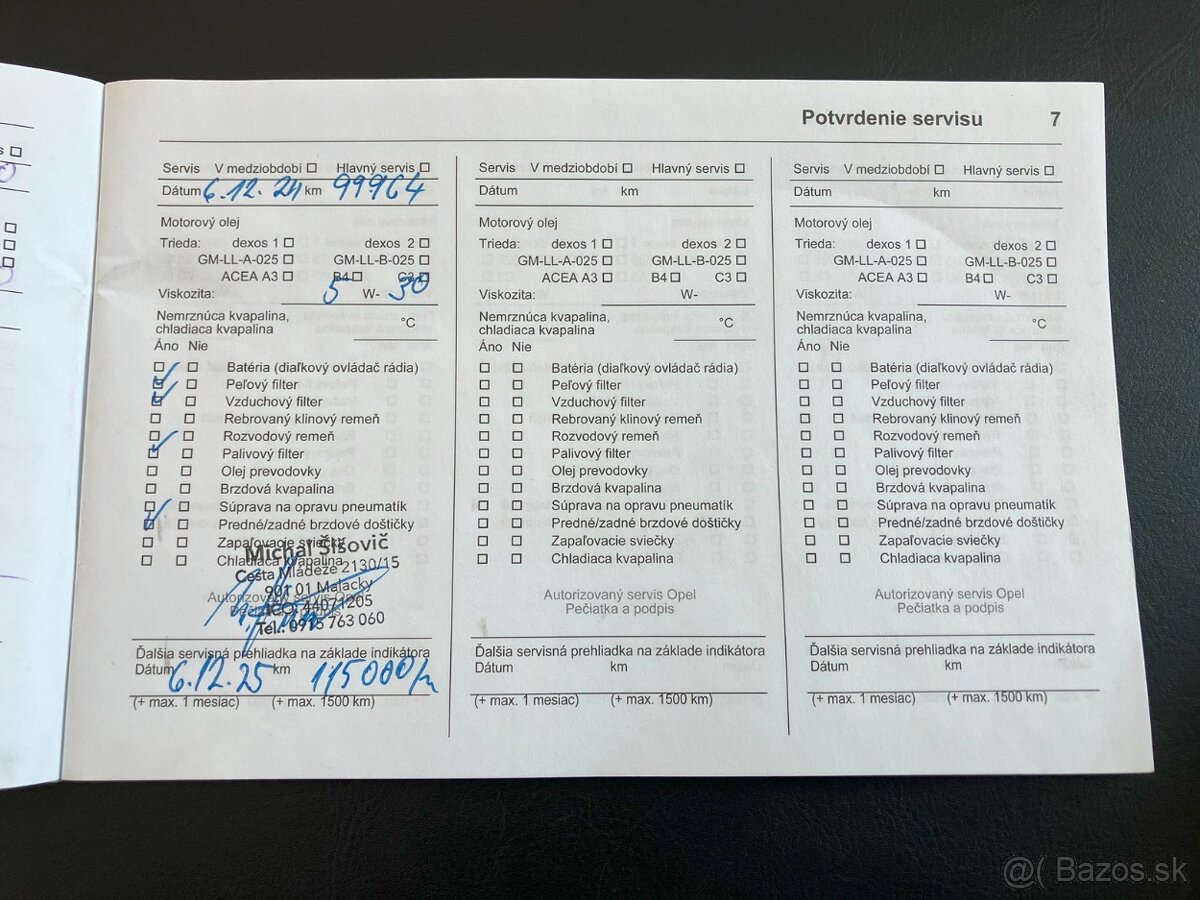 Potvrdenie servisu 7
Servis V medziobdobí Hlavný servis
Dátum 6.12.24 km 99964
Motorový olej
Trieda: dexos 1 dexos 2
GM-LL-A-025 GM-LL-B-025
ACEA A3 B4 C3
Viskozita: 5 W- 30
Nemrznúca kvapalina,
chladiaca kvapalina °C
Áno Nie
Batéria (diaľkový ovládač rádia)
Peľový filter
Vzduchový filter
Rebrovaný klinový remeň
Rozvodový remeň
Palivový filter
Olej prevodovky
Brzdová kvapalina
Súprava na opravu pneumatík
Predné/zadné brzdové doštičky
Zapaľovacie sviečky
Chladiaca kvapalina
Michal Šišovič
Cesta Mládeže 2130/15
901 01 Malacky
IČO: 44071205
Tel.: 0915 763 060
Autorizovaný servis Opel
Pečiatka a podpis
Ďalšia servisná prehliadka na základe indikátora
Dátum 6.12.25 km 115000
(+ max. 1 mesiac) (+ max. 1500 km)
Servis V medziobdobí Hlavný servis
Dátum km
Motorový olej
Trieda: dexos 1 dexos 2
GM-LL-A-025 GM-LL-B-025
ACEA A3 B4 C3
Viskozita: W-
Nemrznúca kvapalina,
chladiaca kvapalina °C
Áno Nie
Batéria (diaľkový ovládač rádia)
Peľový filter
Vzduchový filter
Rebrovaný klinový remeň
Rozvodový remeň
Palivový filter
Olej prevodovky
Brzdová kvapalina
Súprava na opravu pneumatík
Predné/zadné brzdové doštičky
Zapaľovacie sviečky
Chladiaca kvapalina
Autorizovaný servis Opel
Pečiatka a podpis
Ďalšia servisná prehliadka na základe indikátora
Dátum km
(+ max. 1 mesiac) (+ max. 1500 km)
Servis V medziobdobí Hlavný servis
Dátum km
Motorový olej
Trieda: dexos 1 dexos 2
GM-LL-A-025 GM-LL-B-025
ACEA A3 B4 C3
Viskozita: W-
Nemrznúca kvapalina,
chladiaca kvapalina °C
Áno Nie
Batéria (diaľkový ovládač rádia)
Peľový filter
Vzduchový filter
Rebrovaný klinový remeň
Rozvodový remeň
Palivový filter
Olej prevodovky
Brzdová kvapalina
Súprava na opravu pneumatík
Predné/zadné brzdové doštičky
Zapaľovacie sviečky
Chladiaca kvapalina
Autorizovaný servis Opel
Pečiatka a podpis
Ďalšia servisná prehliadka na základe indikátora
Dátum km
(+ max. 1 mesiac) (+ max. 1500 km)
@( Bazos.sk